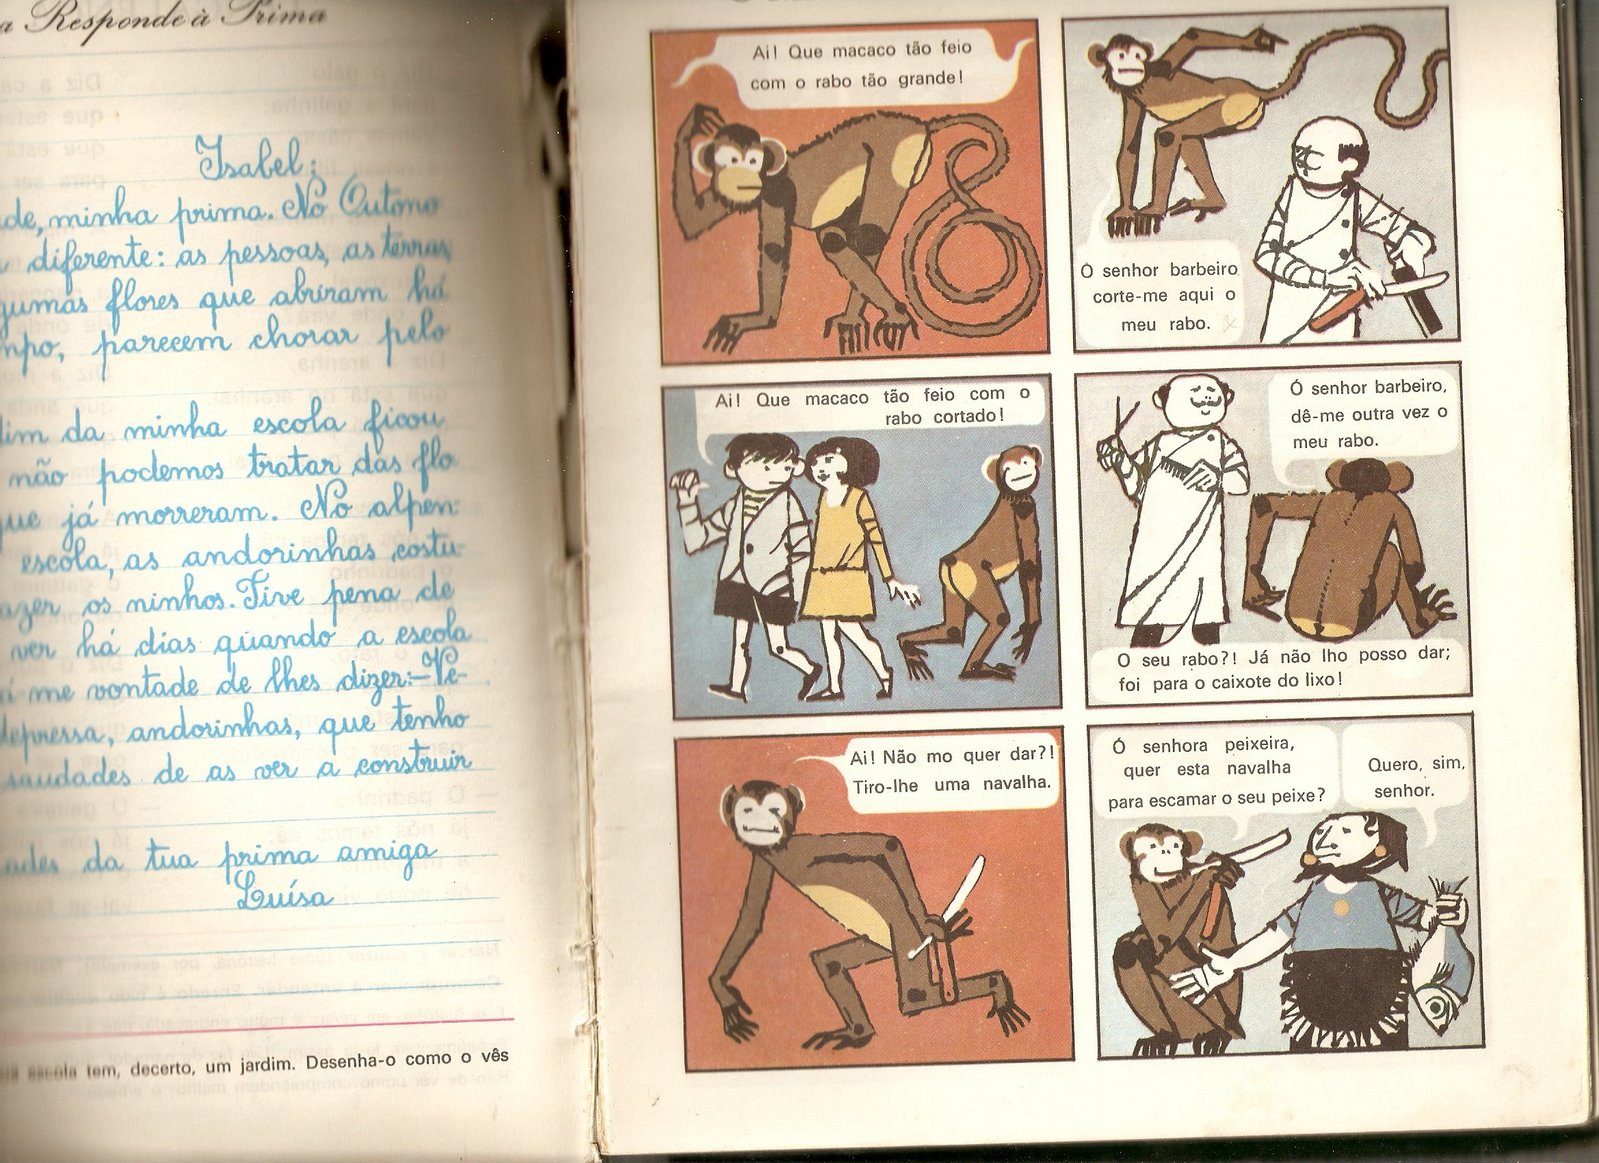 a Responde à Prima
Isabel:
minha prima. No Outono
diferente: as pessoas, as terras,
flores que abriram há
parecem chorar pelo
da minha escola ficou
não podemos tratar das flo-
que já morreram. No alpen-
escola, as andorinhas costu-
os ninhos. Tive pena de
ver há dias quando a escola
me vontade de lhes dizer: — Ve-
depressa, andorinhas, que tenho
saudades de as ver a construir
da tua prima amiga
Luísa
escola tem, decerto, um jardim. Desenha-o como o vês
Ai! Que macaco tão feio
com o rabo tão grande!
Ó senhor barbeiro
corte-me aqui o
meu rabo.
Ai! Que macaco tão feio com o
rabo cortado!
Ó senhor barbeiro,
dê-me outra vez o
meu rabo.
O seu rabo?! Já não lho posso dar;
foi para o caixote do lixo!
Ai! Não mo quer dar?!
Tiro-lhe uma navalha.
Ó senhora peixeira,
quer esta navalha
para escamar o seu peixe?
Quero, sim,
senhor.